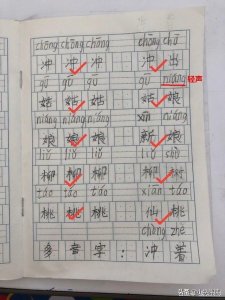 chōng chōng chōng chōng chū
冲 冲 冲 冲 出
gū gū gū gū niáng 轻声
姑 姑 姑 姑 娘
niáng niáng niáng xīn niáng
娘 娘 娘 新 娘
liǔ liǔ liǔ liǔ shù
柳 柳 柳 柳 树
táo táo táo xiān táo
桃 桃 桃 仙 桃
chòng zhe
多 音 字 : 冲 着